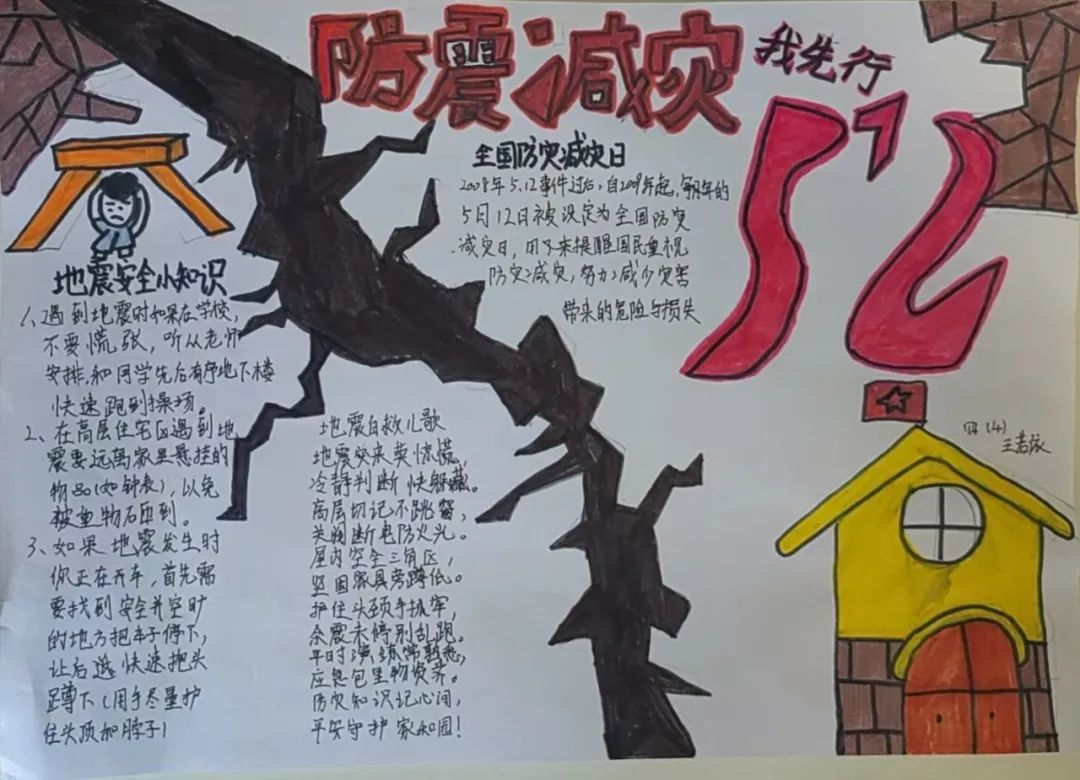 防震减灾
我先行
512
全国防灾减灾日
2008年5.12事件过后，自2009年起，每年的
5月12日被设定为全国防灾
减灾日，用来提醒国民重视
防灾减灾，努力减少灾害
带来的危险与损失
地震安全小知识
1、遇到地震时如果在学校，
不要慌张，听从老师
安排，和同学先后有序地下楼
快速跑到操场。
2、在高层住宅区遇到地
震要远离家里悬挂的
物品(如钟表)，以免
被重物石砸到。
3、如果地震发生时
你正在开车，首先需
要找到安全并空旷
的地方把车子停下，
让后 快速抱头
蹲下(用手尽量护
住头顶和脖子)
地震自救儿歌
地震突来莫惊慌，
冷静判断快躲藏。
高层切记不跳窗，
关阀断电防火光。
屋内空全三角区，
坚固家具旁蹲低。
护住头颈手抓牢，
余震未停别乱跑。
平时演练常熟悉，
应急包里物资齐。
防灾知识记心间，
平安守护家和园！
四(4)
王